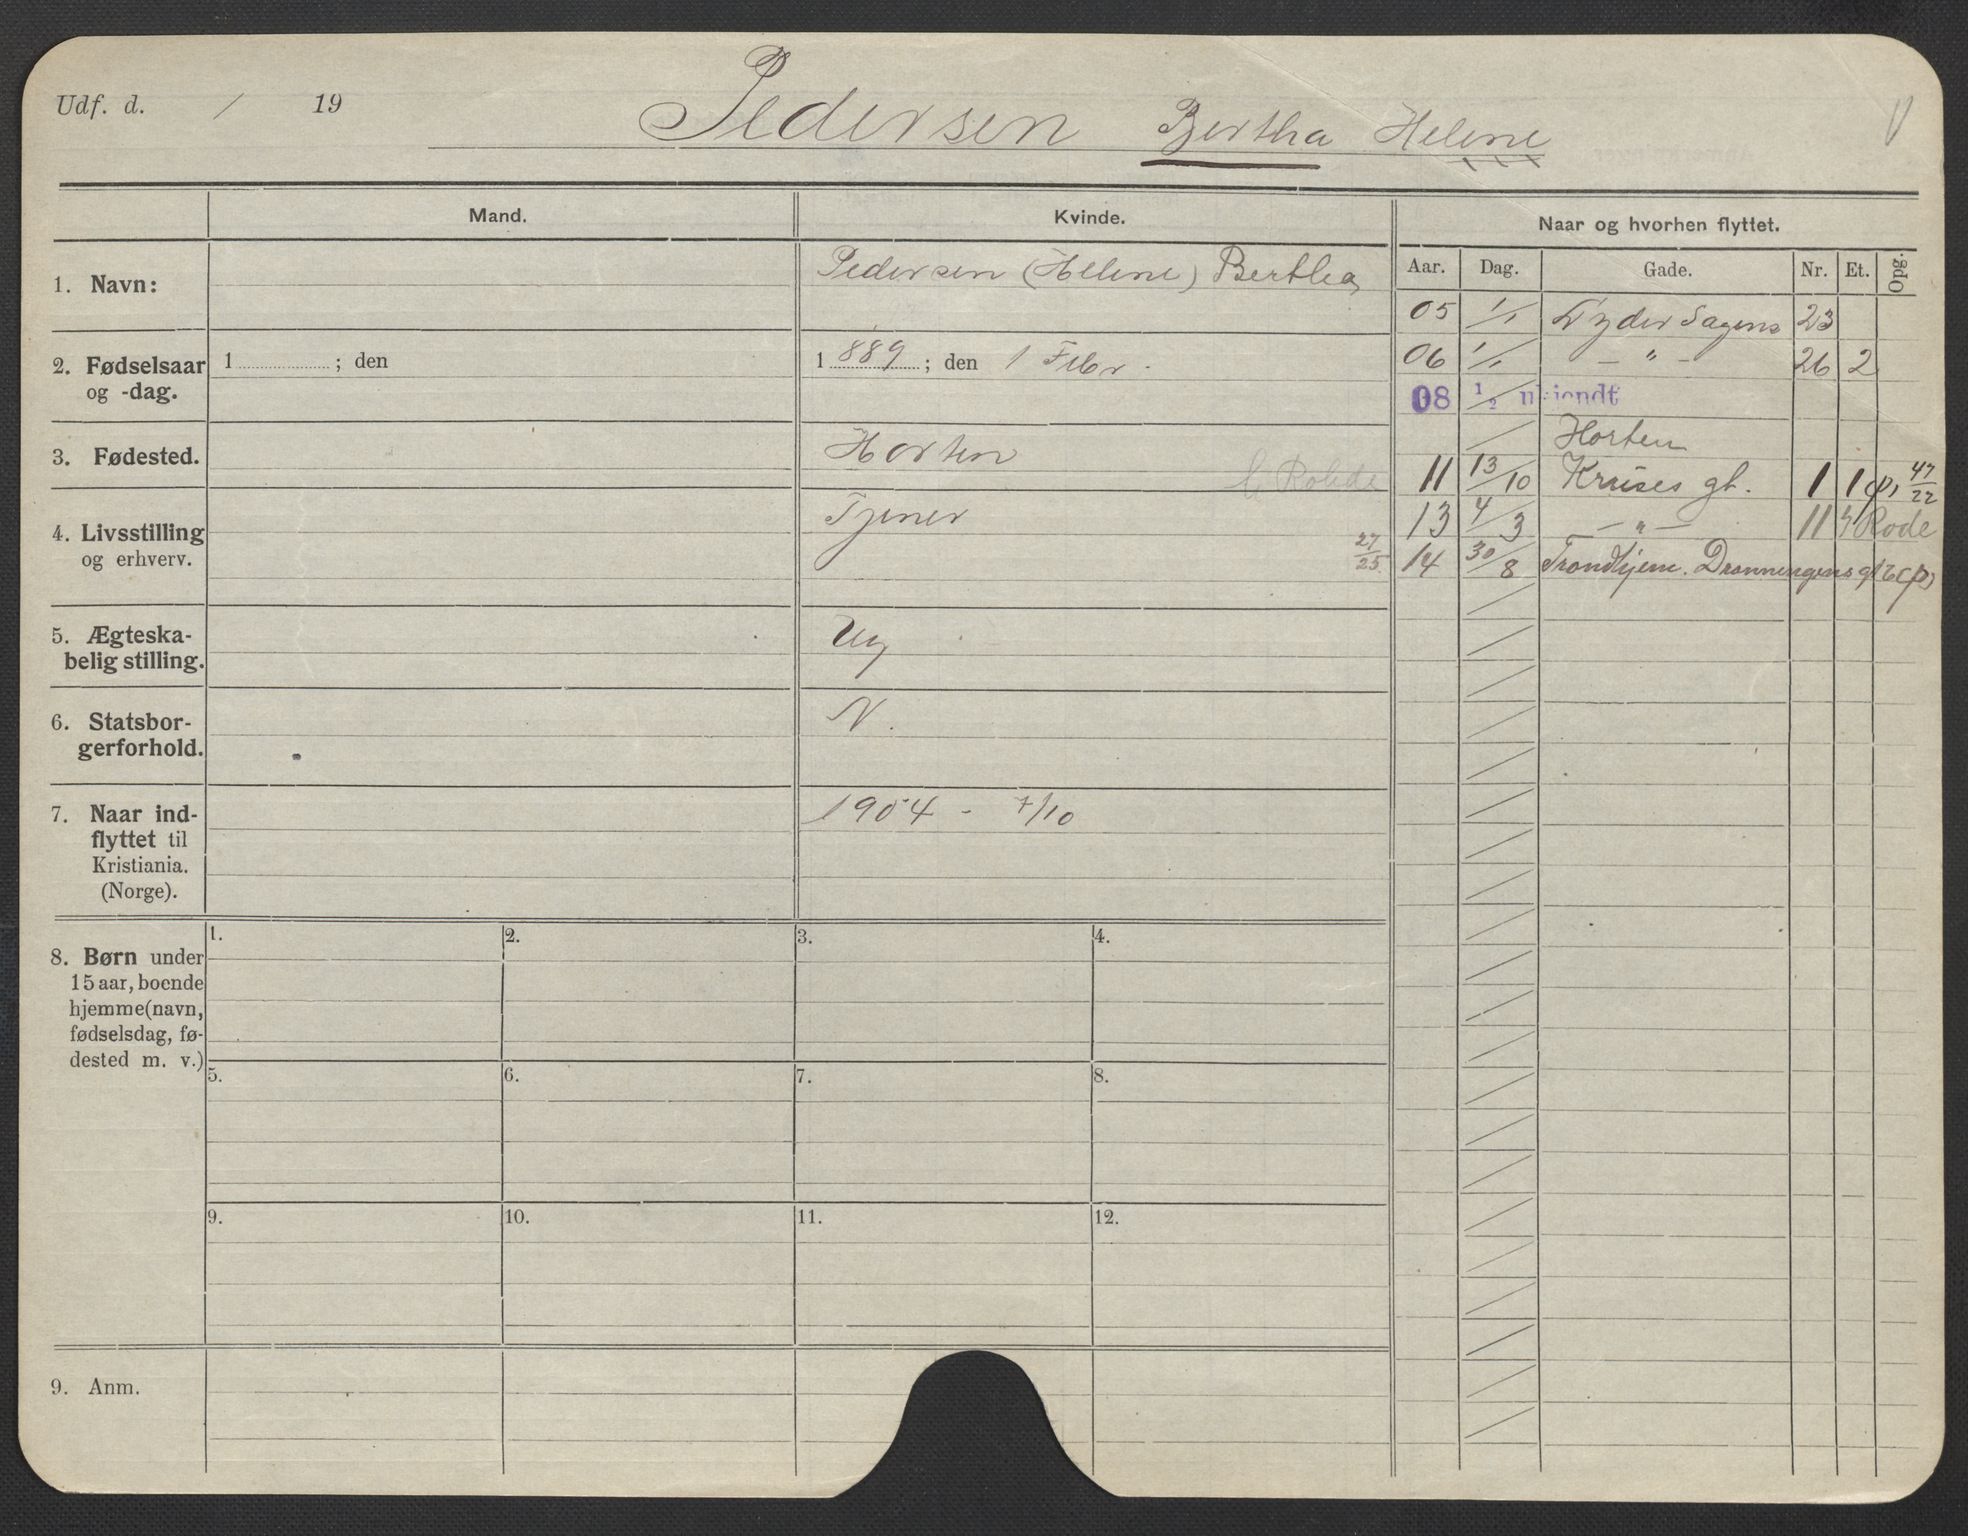 Udf. d. / 19
Pedersen Bertha Helene
Mand. Kvinde. Naar og hvorhen flyttet.
Aar. Dag. Gade. Nr. Et. Opg.
1. Navn: Pedersen (Helene) Bertha
05 1/1 Lyder Sagens 23
2. Fødselsaar og -dag. 1 ; den 1889 ; den 1 Febr.
06 1/1 — " — 26 2
08 1/2 ukjendt
Horten
3. Fødested. Horten
b. Rohde
11 13/10 Kruses gt. 1 1 47/22
4. Livsstilling og erhverv. Tjener
13 4/3 — " — 11 Rode
27/25 14 30/8 Trondhjem. Dronningens gt
5. Ægteska-
belig stilling. Ug
6. Statsbor-
gerforhold. N.
7. Naar ind-
flyttet til
Kristiania.
(Norge). 1904 - 7/10
8. Børn under
15 aar, boende
hjemme (navn,
fødselsdag, fø-
dested m. v.)
1. 2. 3. 4.
5. 6. 7. 8.
9. 10. 11. 12.
9. Anm.